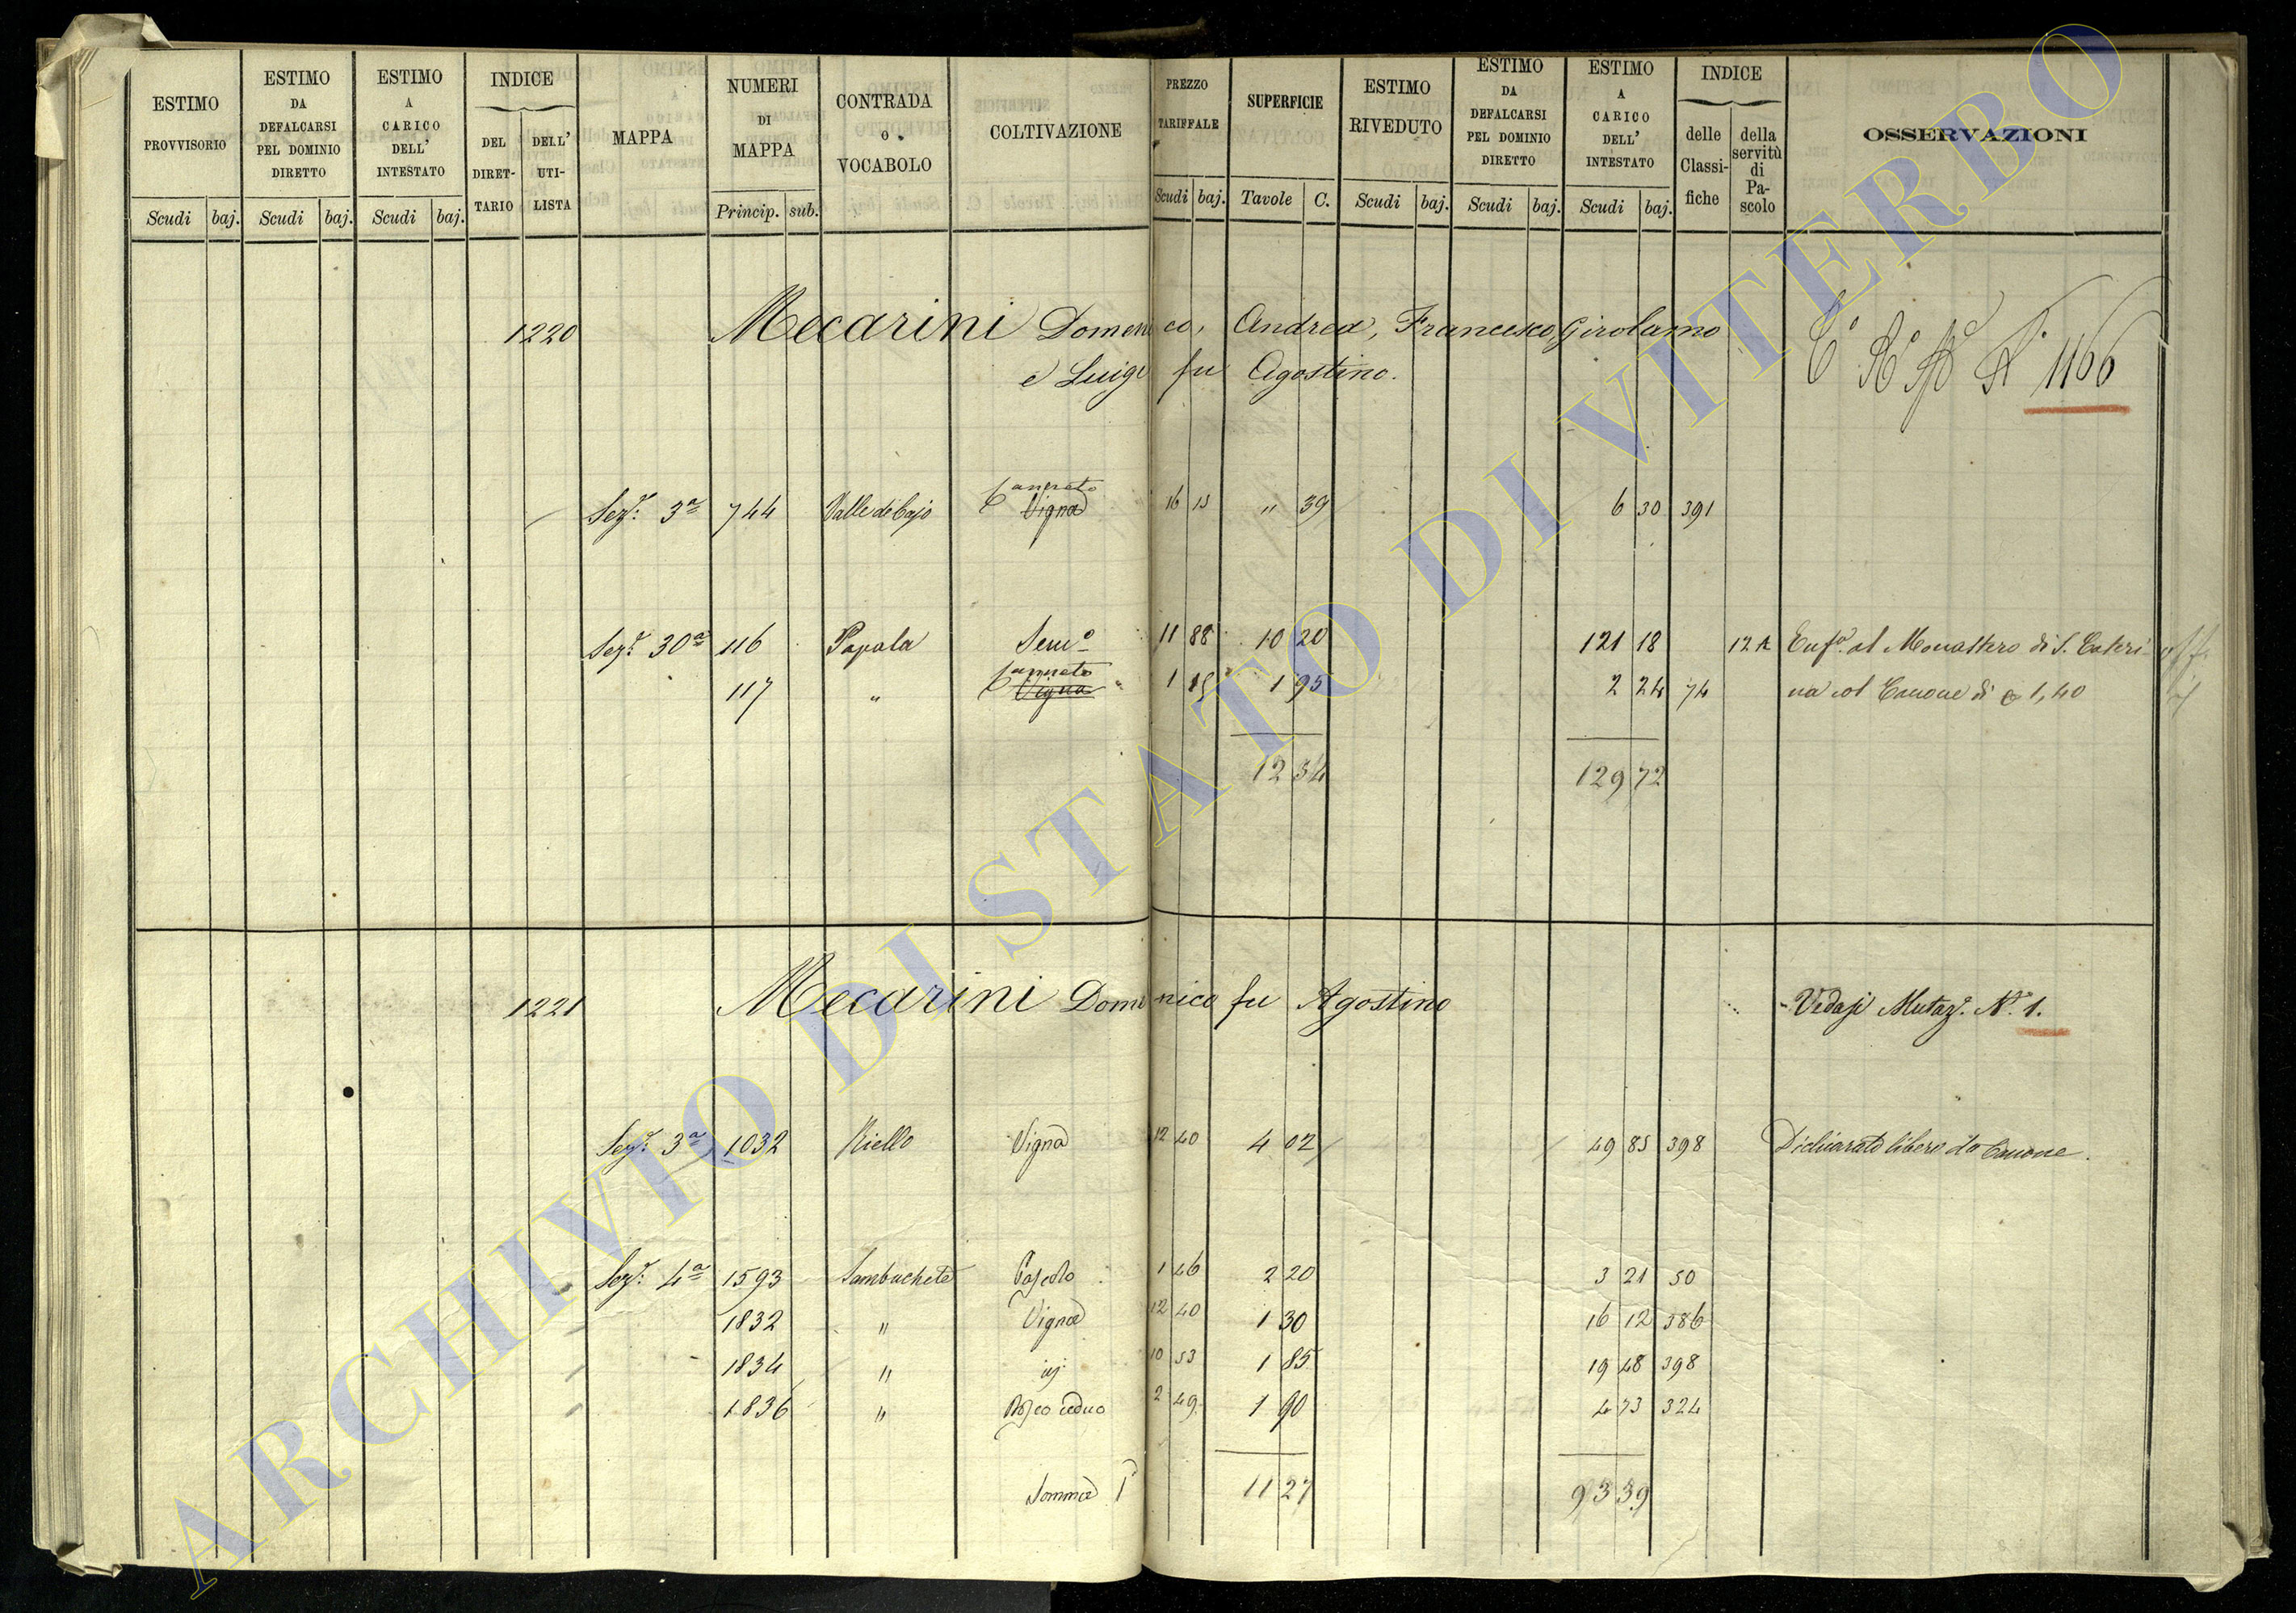 ESTIMO PROVVISORIO Scudi baj.
ESTIMO DA DEFALCARSI PEL DOMINIO DIRETTO Scudi baj.
ESTIMO A CARICO DELL' INTESTATO Scudi baj.
INDICE DEL DIRET- TARIO DELL' UTI- LISTA
MAPPA
NUMERI DI MAPPA Princip. sub.
CONTRADA O VOCABOLO
COLTIVAZIONE
PREZZO TARIFFALE Scudi baj.
SUPERFICIE Tavole C.
ESTIMO RIVEDUTO Scudi baj.
ESTIMO DA DEFALCARSI PEL DOMINIO DIRETTO Scudi baj.
ESTIMO A CARICO DELL' INTESTATO Scudi baj.
INDICE delle Classi- fiche della servitù di Pa- scolo
OSSERVAZIONI
1220 Mecarini Domenico, Andrea, Francesco, Girolamo
e Luigi fu Agostino.
1166
Canneto
Seze. 3a 744 Valle de Cajo Vigna 16 15 " 39 6 30 391
Seze. 30a 116 Papala Semo 11 88 10 20 121 18 12A Enfa. al Monastero di S. Cateri-
Canneto
117 " Vigna " 1 15 1 95 2 24 74 na col Canone di 1,40
12 54 129 72
1221 Mecarini Domenico fu Agostino Vedasi Mutaze. No. 1.
Seze. 3a 1032 Riello Vigna 12 40 4 02 49 85 398 Dichiarato libero da Canone.
Seze. 4a 1593 Sambuchete Pascolo 1 46 2 20 3 21 50
1832 " Vigna 12 40 1 30 16 12 386
1834 " 10 53 1 85 19 48 398
1836 " Bosco ceduo 2 49 1 90 4 73 324
Somma 11 27 93 39
ARCHIVIO DI STATO DI VITERBO